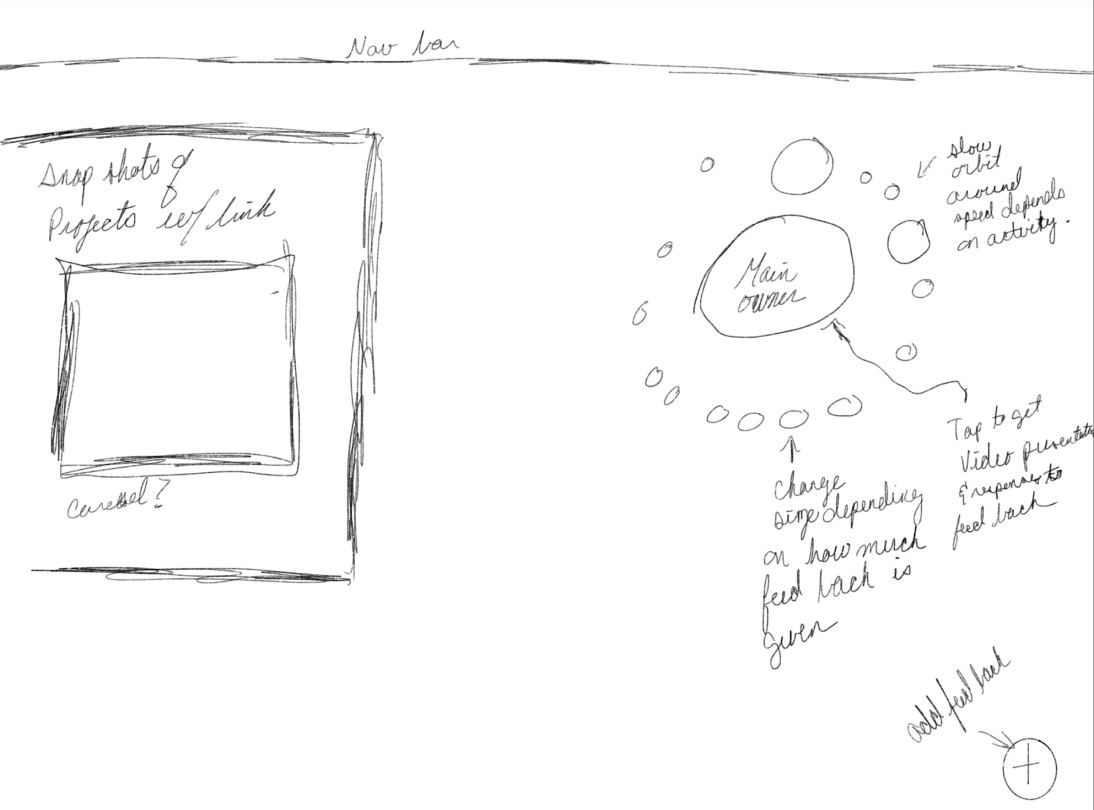 Nav bar
Snap shots of
Projects w/ link
slow
orbit
around
speed depends
on activity.
Main
owner
Tap to get
Video presentation
& responses to
feed back
Change
size depending
on how much
feed back is
given
add feed back
+